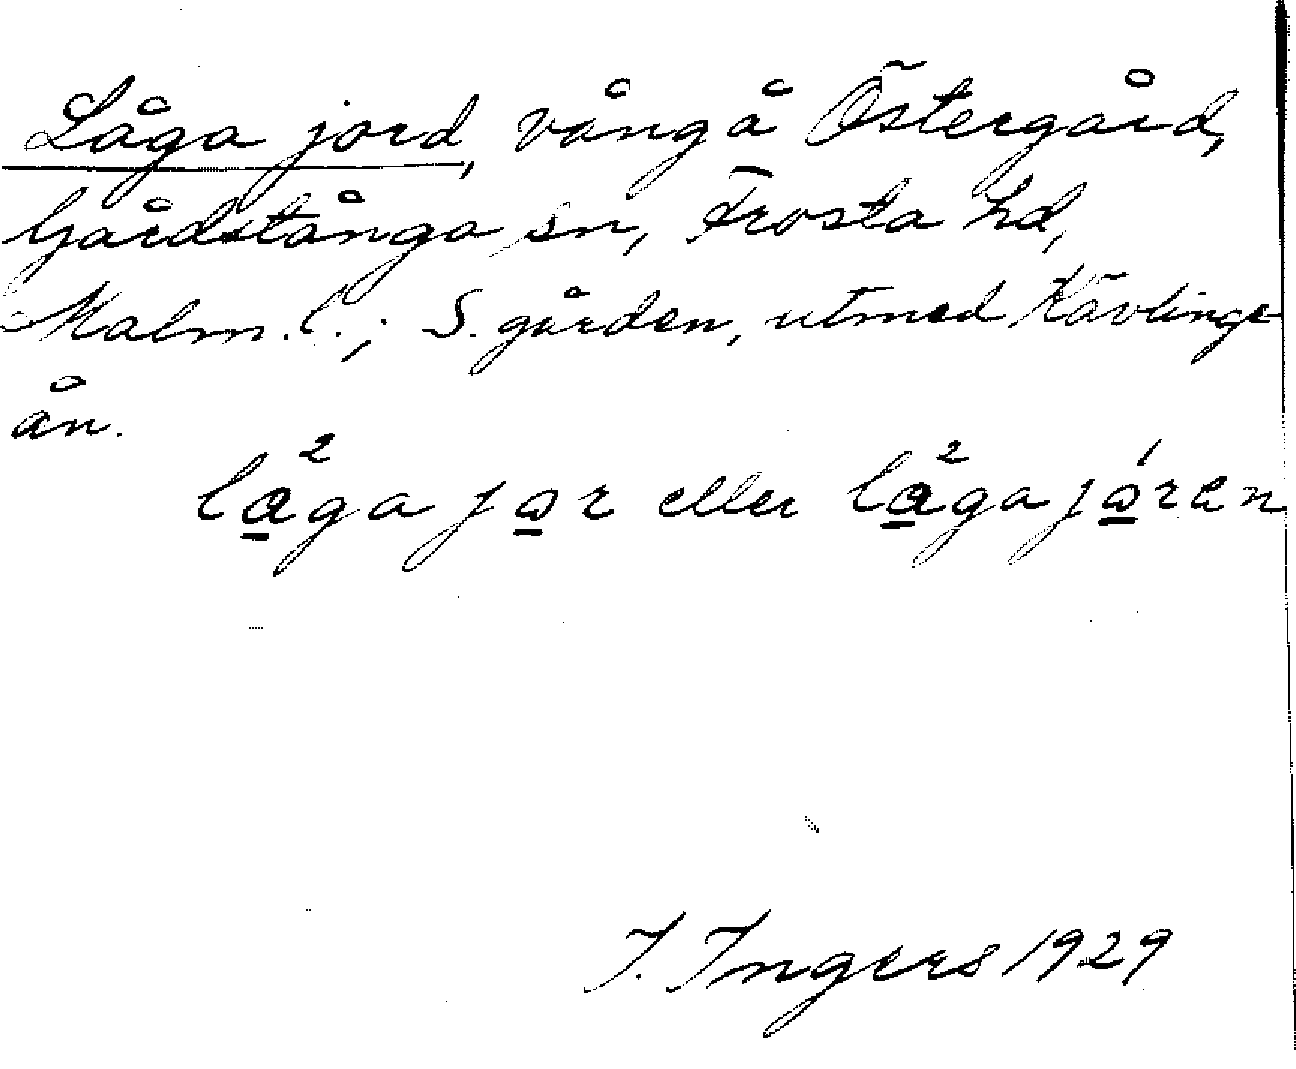 Låga jord, vång å Östergård,
Gårdstånga sn, Frosta hd,
Malm. l.; S. gården, utmed Kävlinge-
ån.
lå²ga jor eller lå²gajóren
I. Ingers 1929